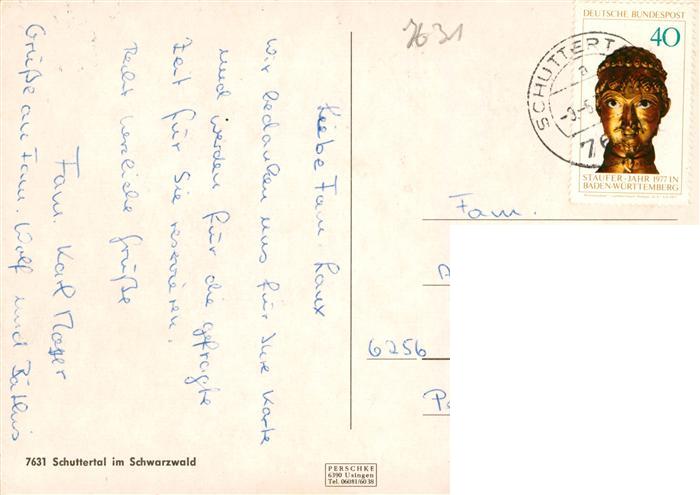 Liebe Fam. Laux
Wir bedanken uns für Ihre Karte
und werden für die gefragte
Zeit für Sie reservieren.
Recht herzliche Grüße
Fam. Karl
Grüße an Fam. Wolf und
7631 Schuttertal im Schwarzwald
PERSCHKE
6390 Usingen
Tel. 06081/6038
7631
DEUTSCHE BUNDESPOST
40
STAUFER-JAHR 1977 IN
BADEN-WÜRTTEMBERG
SCHUTTERT
a
76
Fam.
6256